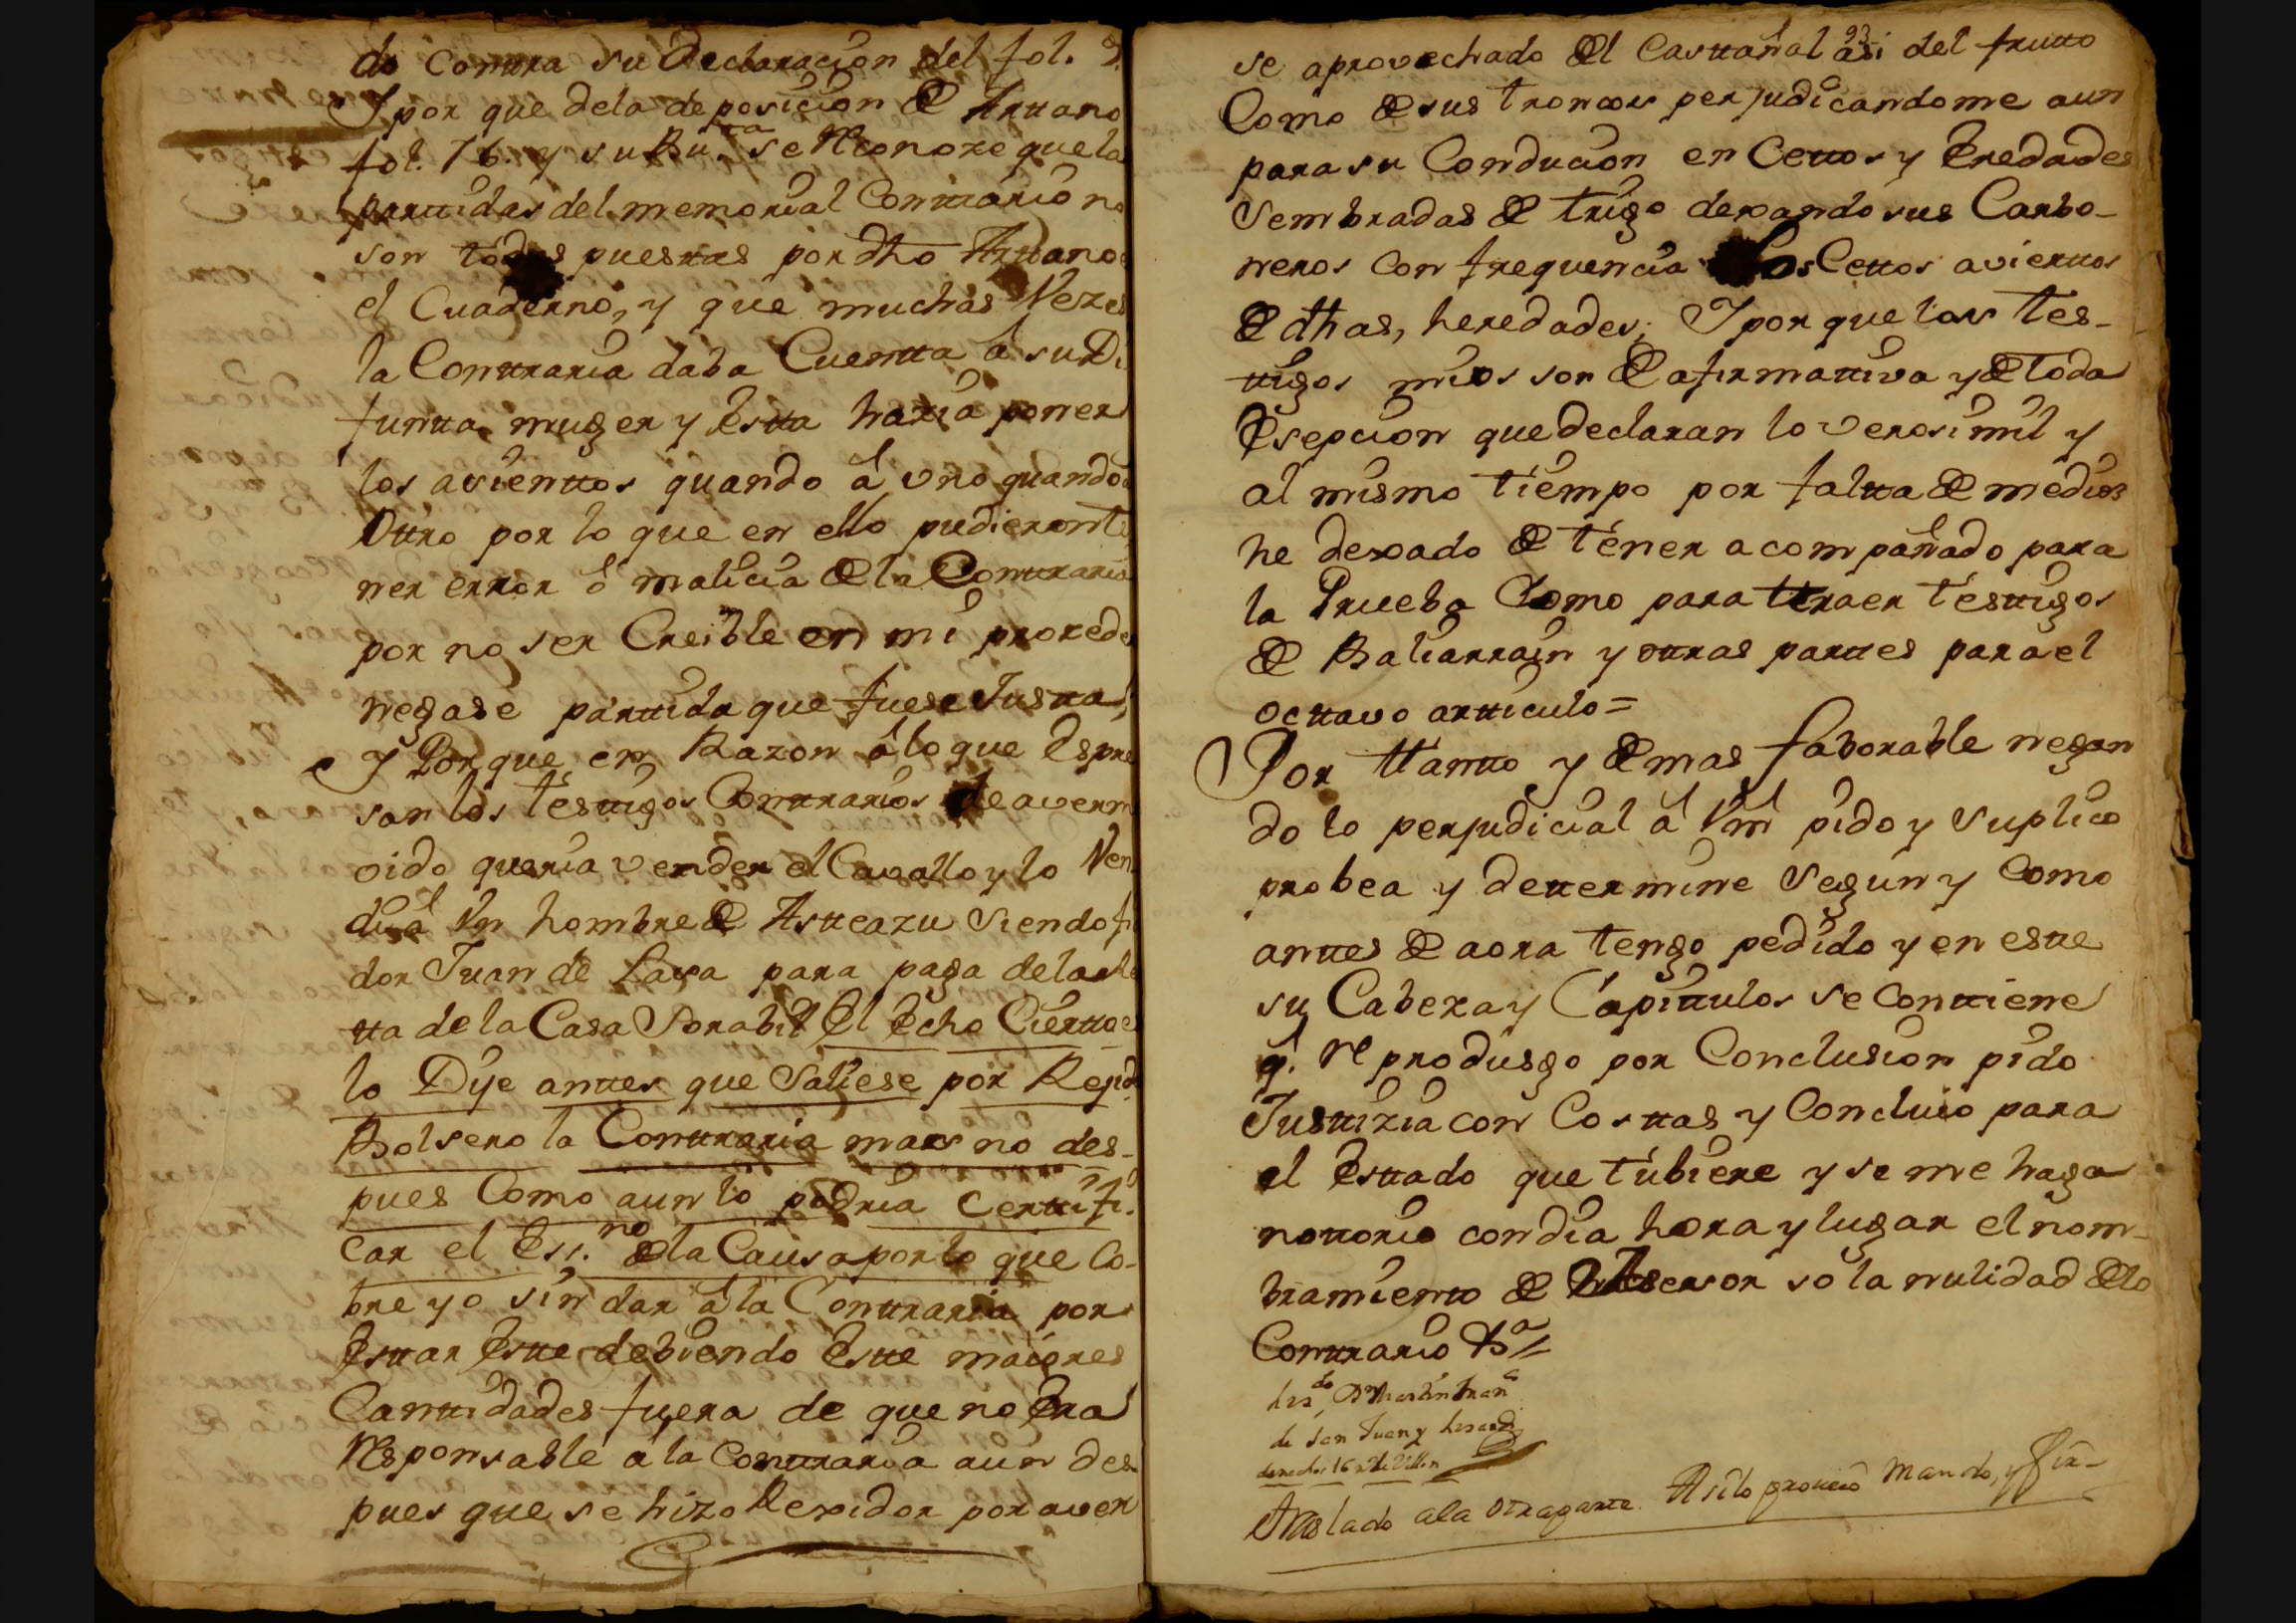 do Conttra su Declaracion del fol. 9.
Y por que dela deposicion de Arttano
fol. 76. y su Bu.ta se reconoze que la
parttidas del memorial Conttrario no
son todas puesttas por dho Arttano
el Cuaderno, y que muchas Vezes
la Conttraria daba Cuentta â su Di
funtta muger y estta hazia poner
los asienttos quando â uno quando
Ottro por lo que en ello pudieron te
ner error ô malicia de la Conttraria
por no ser Creible en mi prozede
negase parttida que fuese Justta,
Y Porque en Razon â lo que Espre
san los testtigos Conttrarios de averm
oido queria vender el Cavallo y lo Ven
di â Un hombre de Astteazu Siendo fi
dor Juan de Lasa para paga dela
tta de la Casa Sorabil El Echo Ciertto e
lo Dije anttes que Saliese por Rejid
Bolsero la Conttraria mas no des-
pues Como aun lo podria Certtifi-
car el Ess.no de la Causa por lo que Co-
bre yo sin dar â la Conttraria por
Esttar Estte debiendo Estte maiores
Canttidades fuera de que no Era
responsable a la Conttraria aun des
pues que se hizo Rexidor por aver
93
se aprovechado del Casttañal asi del frutto
Como de sus troncos perjudicandome aun
para su Conducion en Cettos y Eredades
Sembradas de trigo dexando sus Carbo-
neros con frequencia los Cettos aviertos
de dthas, heredades; Y por que los tes-
ttigos mios son de afirmattiva y de toda
Esepcion que declaran lo verosimil y
al mismo tiempo por faltta de medios
he dexado de tener acompañado para
la Prueba Como para ttraer testtigos
de Baliarrain y ottras parttes para el
octtavo artticulo=
Por ttantto y demas faborable negan
do lo perjudicial â Vm pido y Suplico
probea y dettermine Segun y Como
anttes de aora tengo pedido y en estte
su Cabeza y Capittulos se Conttiene
q.e reprodusgo por Conclusion pido
Justtizia con Costtas y Concluio para
el Esttado que tubiere y se me haga
nottorio con dia hora y lugar el nom-
bramiento de Asesor so la nulidad de lo
Conttrario
de San Juan y
derechos 16 Rs de Vellon
traslado ala otra parte. Asilo proueio Mando, y fir-